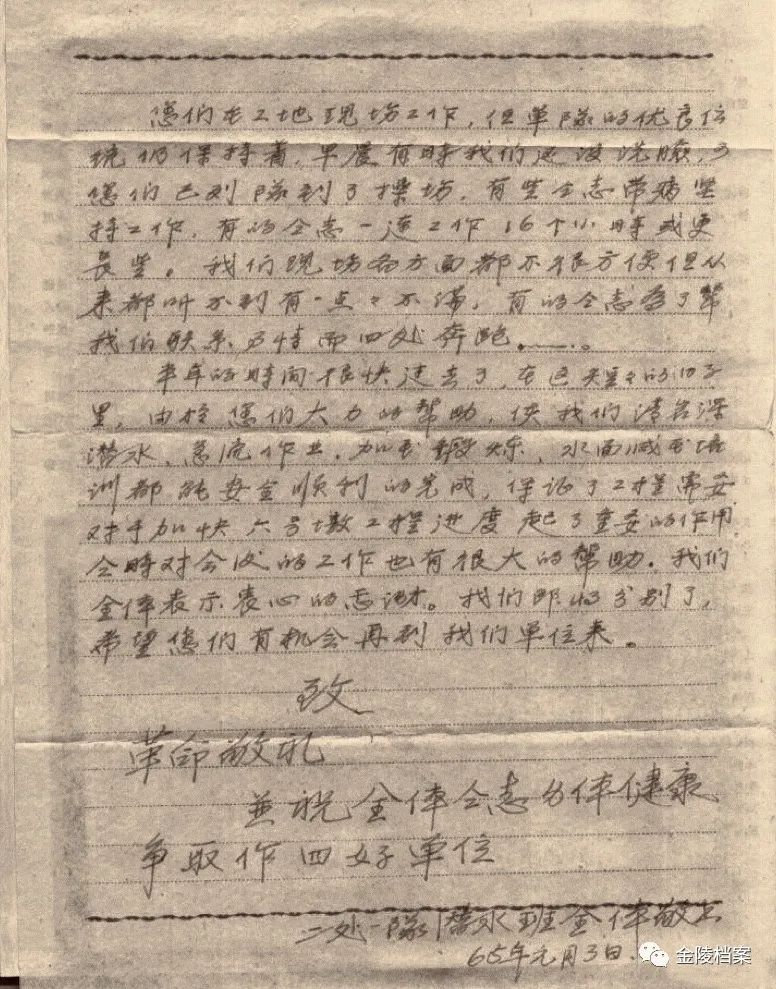 您们在工地现场工作，但单队的优良传
统仍保持着，早晨有時我们还没洗脸，
您们已列隊到了操场，有些仝志带病坚
持工作，有的仝志一连工作16个小時或更
长些。我们现场各方面都不很方便但从
来都听不到有一点々不满，有的仝志为了帮
我们联系事情而四处奔跑。……。
半年的時间很快过去了，在这短々的日子
里，由於您们大力的帮助，使我们清岩深
潜水、急流作业，加压锻炼，水面减压培
训都能安全顺利的完成，保证了工程需要
对于加快六号墩工程進度起了重要的作用
仝時对会议的工作也有很大的帮助。我们
全体表示衷心的感谢。我们即将分别了，
希望您们有机会再到我们单位来。
致
革命敬礼
並祝全体仝志身体健康
争取作四好单位
二处一隊潜水班全体敬上
65年元月3日
金陵档案